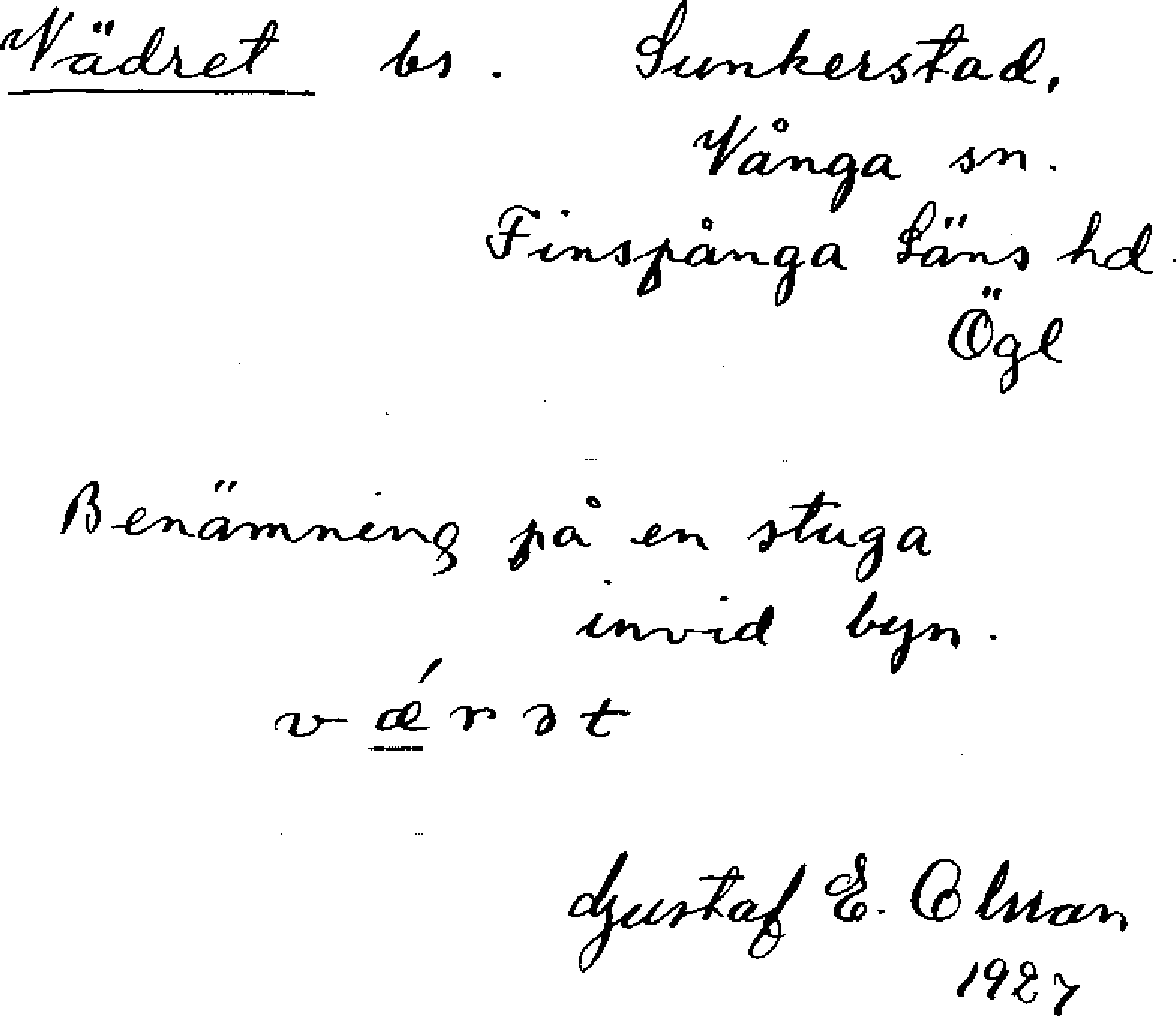 Vädret bs. Sunkerstad,
Vånga sn.
Finspånga läns hd.
Ögl
Benämning på en stuga
invid byn.
vǽrət
Gustaf E. Olsson
1927